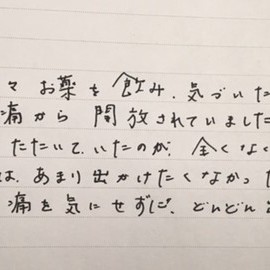 々 お薬を飲み、気づいた
痛から 開放されていました
ただいていたのが、全くなく
は、あまり出かけたくなかっ
痛を気にせずに、どんどん